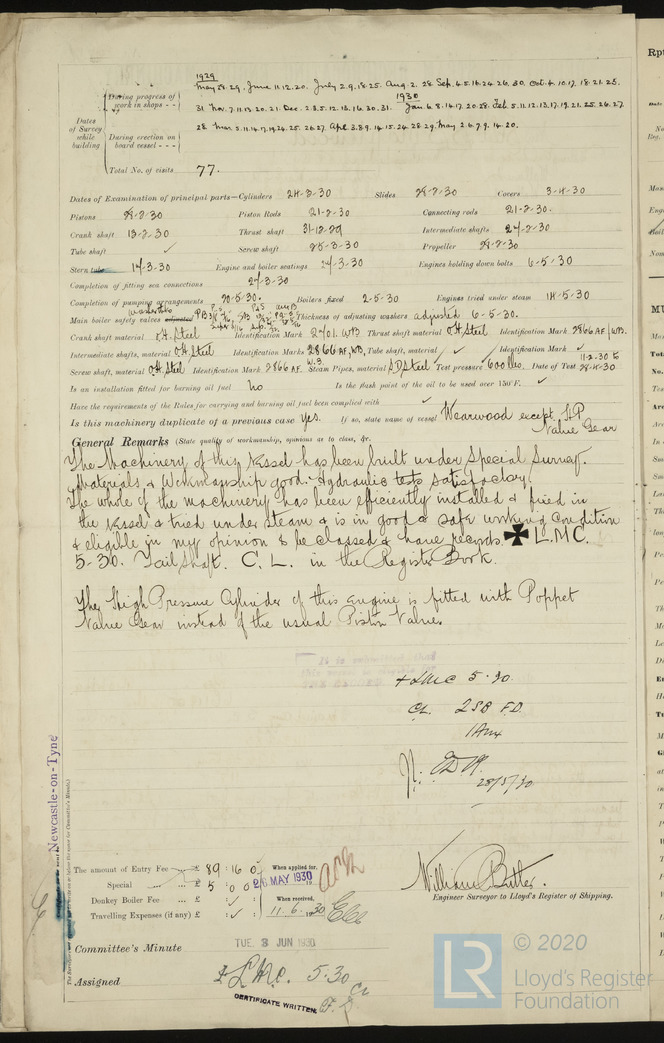 1929
During progress of work in shops - - May 28. 29. June 11. 12. 20. July 2. 9. 18. 25. Aug. 2. 28. Sep. 4. 5. 16. 24. 26. 30. Oct. 4. 10. 17. 18. 21. 25.
1930
31. Nov. 7. 11. 13. 20. 21. Dec. 2. 3. 5. 12. 13. 16. 30. 31. Jan. 6. 8. 14. 17. 20. 28. Feb. 5. 11. 12. 13. 17. 19. 21. 25. 26. 27.
Dates of Survey while building
During erection on board vessel - - - 28 Mar. 2. 11. 14. 17. 19. 24. 25. 26. 27. Apl. 3. 8. 9. 14. 15. 24. 28. 29. May 2. 6. 7. 9. 14. 20.
Total No. of visits 77.
Dates of Examination of principal parts—Cylinders 24-3-30 Slides 28-2-30 Covers 3-4-30
Pistons 28-2-30 Piston Rods 21-2-30 Connecting rods 21-2-30.
Crank shaft 13-2-30 Thrust shaft 31-12-29 Intermediate shafts 24-2-30
Tube shaft ✓ Screw shaft 25-3-30 Propeller 28-2-30
Stern tube 14-3-30 Engine and boiler seatings 24-3-30 Engines holding down bolts 6-5-30
Completion of fitting sea connections 24-3-30
Completion of pumping arrangements 20-5-30. Boilers fixed 2-5-30 Engines tried under steam 14-5-30
Main boiler safety valves adjusted Thickness of adjusting washers adjusted 6-5-30.
Crank shaft material O.H. Steel Identification Mark 2701 WB Thrust shaft material O.H. Steel Identification Mark 2866 AF/WB.
Intermediate shafts, material O.H. Steel Identification Marks 2866 AF, WB, Tube shaft, material ✓ Identification Mark ✓
Screw shaft, material O.H. Steel Identification Mark 2866 AF. W.B. Steam Pipes, material S.D. Steel Test pressure 600 lbs. Date of Test 11-2-30 to 28-4-30
Is an installation fitted for burning oil fuel No Is the flash point of the oil to be used over 150°F. ✓
Have the requirements of the Rules for carrying and burning oil fuel been complied with ✓
Is this machinery duplicate of a previous case Yes. If so, state name of vessel Wearwood except H.P
Valve Gear
General Remarks (State quality of workmanship, opinions as to class, &c.
The Machinery of this Vessel has been built under Special Survey.
Materials & Workmanship good. Hydraulic tests satisfactory.
The whole of the machinery has been efficiently installed & tried in
the vessel & tried under steam & is in good & safe working condition
& eligible in my opinion to be classed & have records. ✠ L.M.C.
5-30. Tail Shaft. C. L. in the Register Book.
The High Pressure Cylinder of this Engine is fitted with Poppet
Valve Gear instead of the usual Piston Valve.
It is submitted that
+ LMC 5.30
CL. 2SB FD.
28/5/30
Newcastle-on-Tyne
The amount of Entry Fee £ 89 : 16 : 0 When applied for,
Special ... £ 5 : 0 : 0 26 MAY 1930
Donkey Boiler Fee ... £ : ✓ : When received,
Travelling Expenses (if any) £ : ✓ : 11.6.1930
William Butler.
Engineer Surveyor to Lloyd's Register of Shipping.
Committee's Minute TUE. 3 JUN 1930
Assigned + L.M.C. 5.30
CL
CERTIFICATE WRITTEN.
LR
© 2020
Lloyd's Register
Foundation